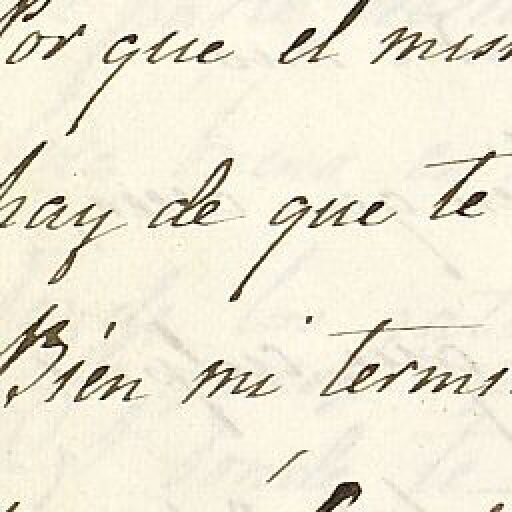 Por que el mism
hay de que te
Bién mi termi